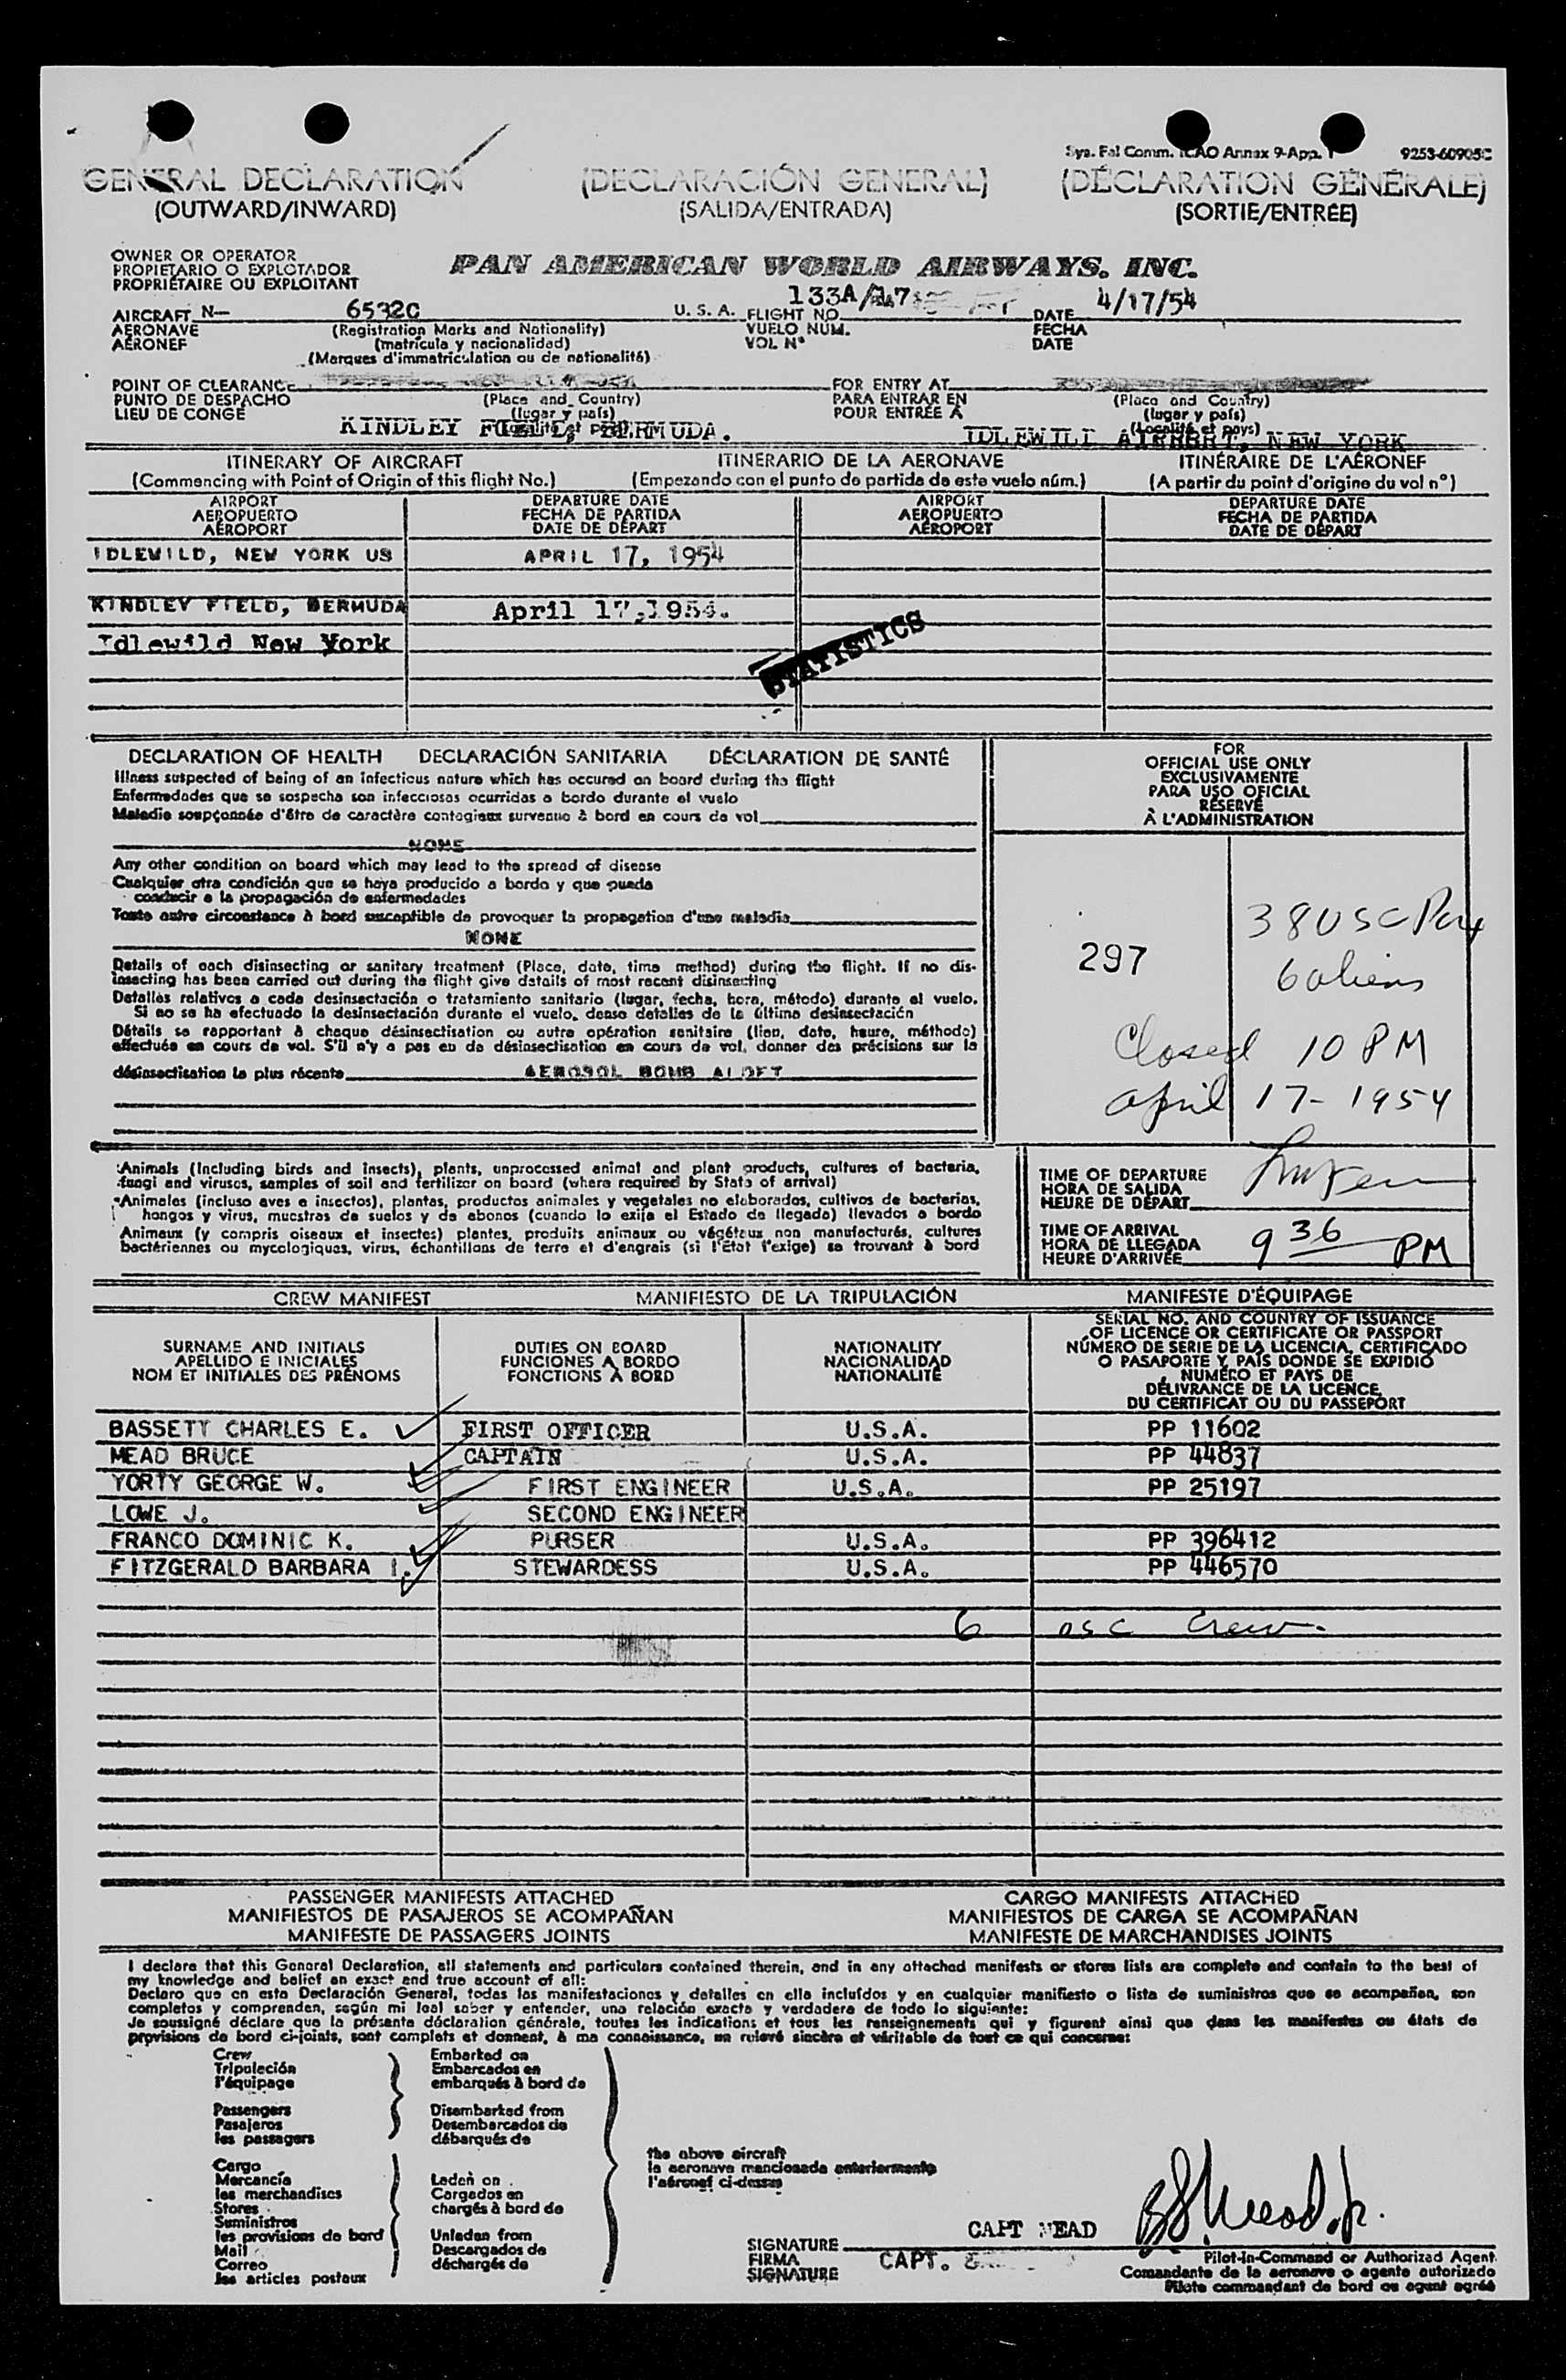 Sys. Fal Comm. ICAO Annex 9-App. 1 9253-60905C
GENERAL DECLARATION (DECLARACIÓN GENERAL) (DÉCLARATION GÉNÉRALE)
(OUTWARD/INWARD) (SALIDA/ENTRADA) (SORTIE/ENTRÉE)
OWNER OR OPERATOR
PROPIETARIO O EXPLOTADOR
PROPRIÉTAIRE OU EXPLOITANT
PAN AMERICAN WORLD AIRWAYS, INC.
AIRCRAFT N— 6532C U. S. A. FLIGHT NO. 133A/17 DATE 4/17/54
AERONAVE (Registration Marks and Nationality) VUELO NÚM. FECHA
AÉRONEF (matrícula y nacionalidad) VOL Nº DATE
(Marques d'immatriculation ou de nationalité)
POINT OF CLEARANCE FOR ENTRY AT
PUNTO DE DESPACHO (Place and Country) PARA ENTRAR EN (Place and Country)
LIEU DE CONGÉ (lugar y país) POUR ENTRÉE À (lugar y país)
(Localité et pays) (Localité et pays)
KINDLEY FIELD, BERMUDA. IDLEWILD AIRPORT, NEW YORK
ITINERARY OF AIRCRAFT ITINERARIO DE LA AERONAVE ITINÉRAIRE DE L'AÉRONEF
(Commencing with Point of Origin of this flight No.) (Empezando con el punto de partida de este vuelo núm.) (A partir du point d'origine du vol nº)
AIRPORT DEPARTURE DATE AIRPORT DEPARTURE DATE
AEROPUERTO FECHA DE PARTIDA AEROPUERTO FECHA DE PARTIDA
AÉROPORT DATE DE DÉPART AÉROPORT DATE DE DÉPART
IDLEWILD, NEW YORK US APRIL 17, 1954
KINDLEY FIELD, BERMUDA April 17,1954.
Idlewild New York
STATISTICS
DECLARATION OF HEALTH DECLARACIÓN SANITARIA DÉCLARATION DE SANTÉ
Illness suspected of being of an infectious nature which has occured on board during the flight
Enfermedades que se sospecha son infecciosas ocurridas a bordo durante el vuelo
Maladie soupçonnée d'être de caractère contagieux survenue à bord en cours de vol
NONE
Any other condition on board which may lead to the spread of disease
Cualquier otra condición que se haya producido a bordo y que pueda
conducir a la propagación de enfermedades
Toute autre circonstance à bord susceptible de provoquer la propagation d'une maladie
NONE
Details of each disinsecting or sanitary treatment (Place, date, time method) during the flight. If no dis-
insecting has been carried out during the flight give details of most recent disinsecting
Detalles relativos a cada desinsectación o tratamiento sanitario (lugar, fecha, hora, método) durante el vuelo.
Si no se ha efectuado la desinsectación durante el vuelo, dense detalles de la última desinsectación
Détails se rapportant à chaque désinsectisation ou autre opération sanitaire (lieu, date, heure, méthode)
effectuée en cours de vol. S'il n'y a pas eu de désinsectisation en cours de vol, donner des précisions sur la
désinsectisation la plus récente AEROSOL BOMB ALOFT
FOR
OFFICIAL USE ONLY
EXCLUSIVAMENTE
PARA USO OFICIAL
RÉSERVÉ
À L'ADMINISTRATION
297
38 USC Pax
6 aliens
Closed 10 PM
April 17- 1954
Animals (Including birds and insects), plants, unprocessed animal and plant products, cultures of bacteria,
fungi and viruses, samples of soil and fertilizer on board (where required by State of arrival)
Animales (incluso aves e insectos), plantas, productos animales y vegetales no elaborados, cultivos de bacterias,
hongos y virus, muestras de suelos y de abonos (cuando lo exija el Estado de llegada) llevados a bordo
Animaux (y compris oiseaux et insectes) plantes, produits animaux ou végétaux non manufacturés, cultures
bactériennes ou mycologiques, virus, échantillons de terre et d'engrais (si l'État l'exige) se trouvant à bord
TIME OF DEPARTURE
HORA DE SALIDA
HEURE DE DÉPART
TIME OF ARRIVAL
HORA DE LLEGADA
HEURE D'ARRIVÉE 9 36 PM
CREW MANIFEST MANIFIESTO DE LA TRIPULACIÓN MANIFESTE D'ÉQUIPAGE
SURNAME AND INITIALS
APELLIDO E INICIALES
NOM ET INITIALES DES PRÉNOMS
DUTIES ON BOARD
FUNCIONES A BORDO
FONCTIONS À BORD
NATIONALITY
NACIONALIDAD
NATIONALITÉ
SERIAL NO. AND COUNTRY OF ISSUANCE
OF LICENCE OR CERTIFICATE OR PASSPORT
NÚMERO DE SERIE DE LA LICENCIA, CERTIFICADO
O PASAPORTE Y PAÍS DONDE SE EXPIDIÓ
NUMÉRO ET PAYS DE
DÉLIVRANCE DE LA LICENCE,
DU CERTIFICAT OU DU PASSEPORT
BASSETT CHARLES E. FIRST OFFICER U.S.A. PP 11602
MEAD BRUCE CAPTAIN U.S.A. PP 44837
YORTY GEORGE W. FIRST ENGINEER U.S.A. PP 25197
LOWE J. SECOND ENGINEER
FRANCO DOMINIC K. PURSER U.S.A. PP 396412
FITZGERALD BARBARA I. STEWARDESS U.S.A. PP 446570
6 USC Crew.
PASSENGER MANIFESTS ATTACHED CARGO MANIFESTS ATTACHED
MANIFIESTOS DE PASAJEROS SE ACOMPAÑAN MANIFIESTOS DE CARGA SE ACOMPAÑAN
MANIFESTE DE PASSAGERS JOINTS MANIFESTE DE MARCHANDISES JOINTS
I declare that this General Declaration, all statements and particulars contained therein, and in any attached manifests or stores lists are complete and contain to the best of
my knowledge and belief an exact and true account of all:
Declaro que en esta Declaración General, todas las manifestaciones y detalles en ella incluídos y en cualquier manifiesto o lista de suministros que se acompañan, son
completos y comprenden, según mi leal saber y entender, una relación exacta y verdadera de todo lo siguiente:
Je soussigné déclare que la présente déclaration générale, toutes les indications et tous les renseignements qui y figurent ainsi que dans les manifestes ou états de
provisions de bord ci-joints, sont complets et donnent, à ma connaissance, un relevé sincère et véritable de tout ce qui concerne:
Crew Embarked on
Tripulación Embarcados en
l'équipage embarqués à bord de
Passengers Disembarked from
Pasajeros Desembarcados de
les passagers débarqués de
Cargo
Mercancía Laden on
les merchandises Cargados en
Stores chargés à bord de
Suministros
les provisions de bord Unladen from
Mail Descargados de
Correo déchargés de
les articles postaux
the above aircraft
la aeronave mencionada anteriormente
l'aéronef ci-dessus
CAPT MEAD
SIGNATURE
FIRMA CAPT.
SIGNATURE
Pilot-in-Command or Authorized Agent
Comandante de la aeronave o agente autorizado
Pilote commandant de bord ou agent agréé